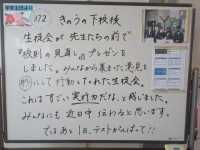 3/2 きのうの下校後
生徒会が先生たちの前で
「校則の見直し」プレゼンを
しました。みんなから集まった意見を
形にして行動してくれた生徒会。
これはすごい実行力だな、と感じました。
みんなにも近日中伝わると思います。
ではあと1日、テストがんばって!!